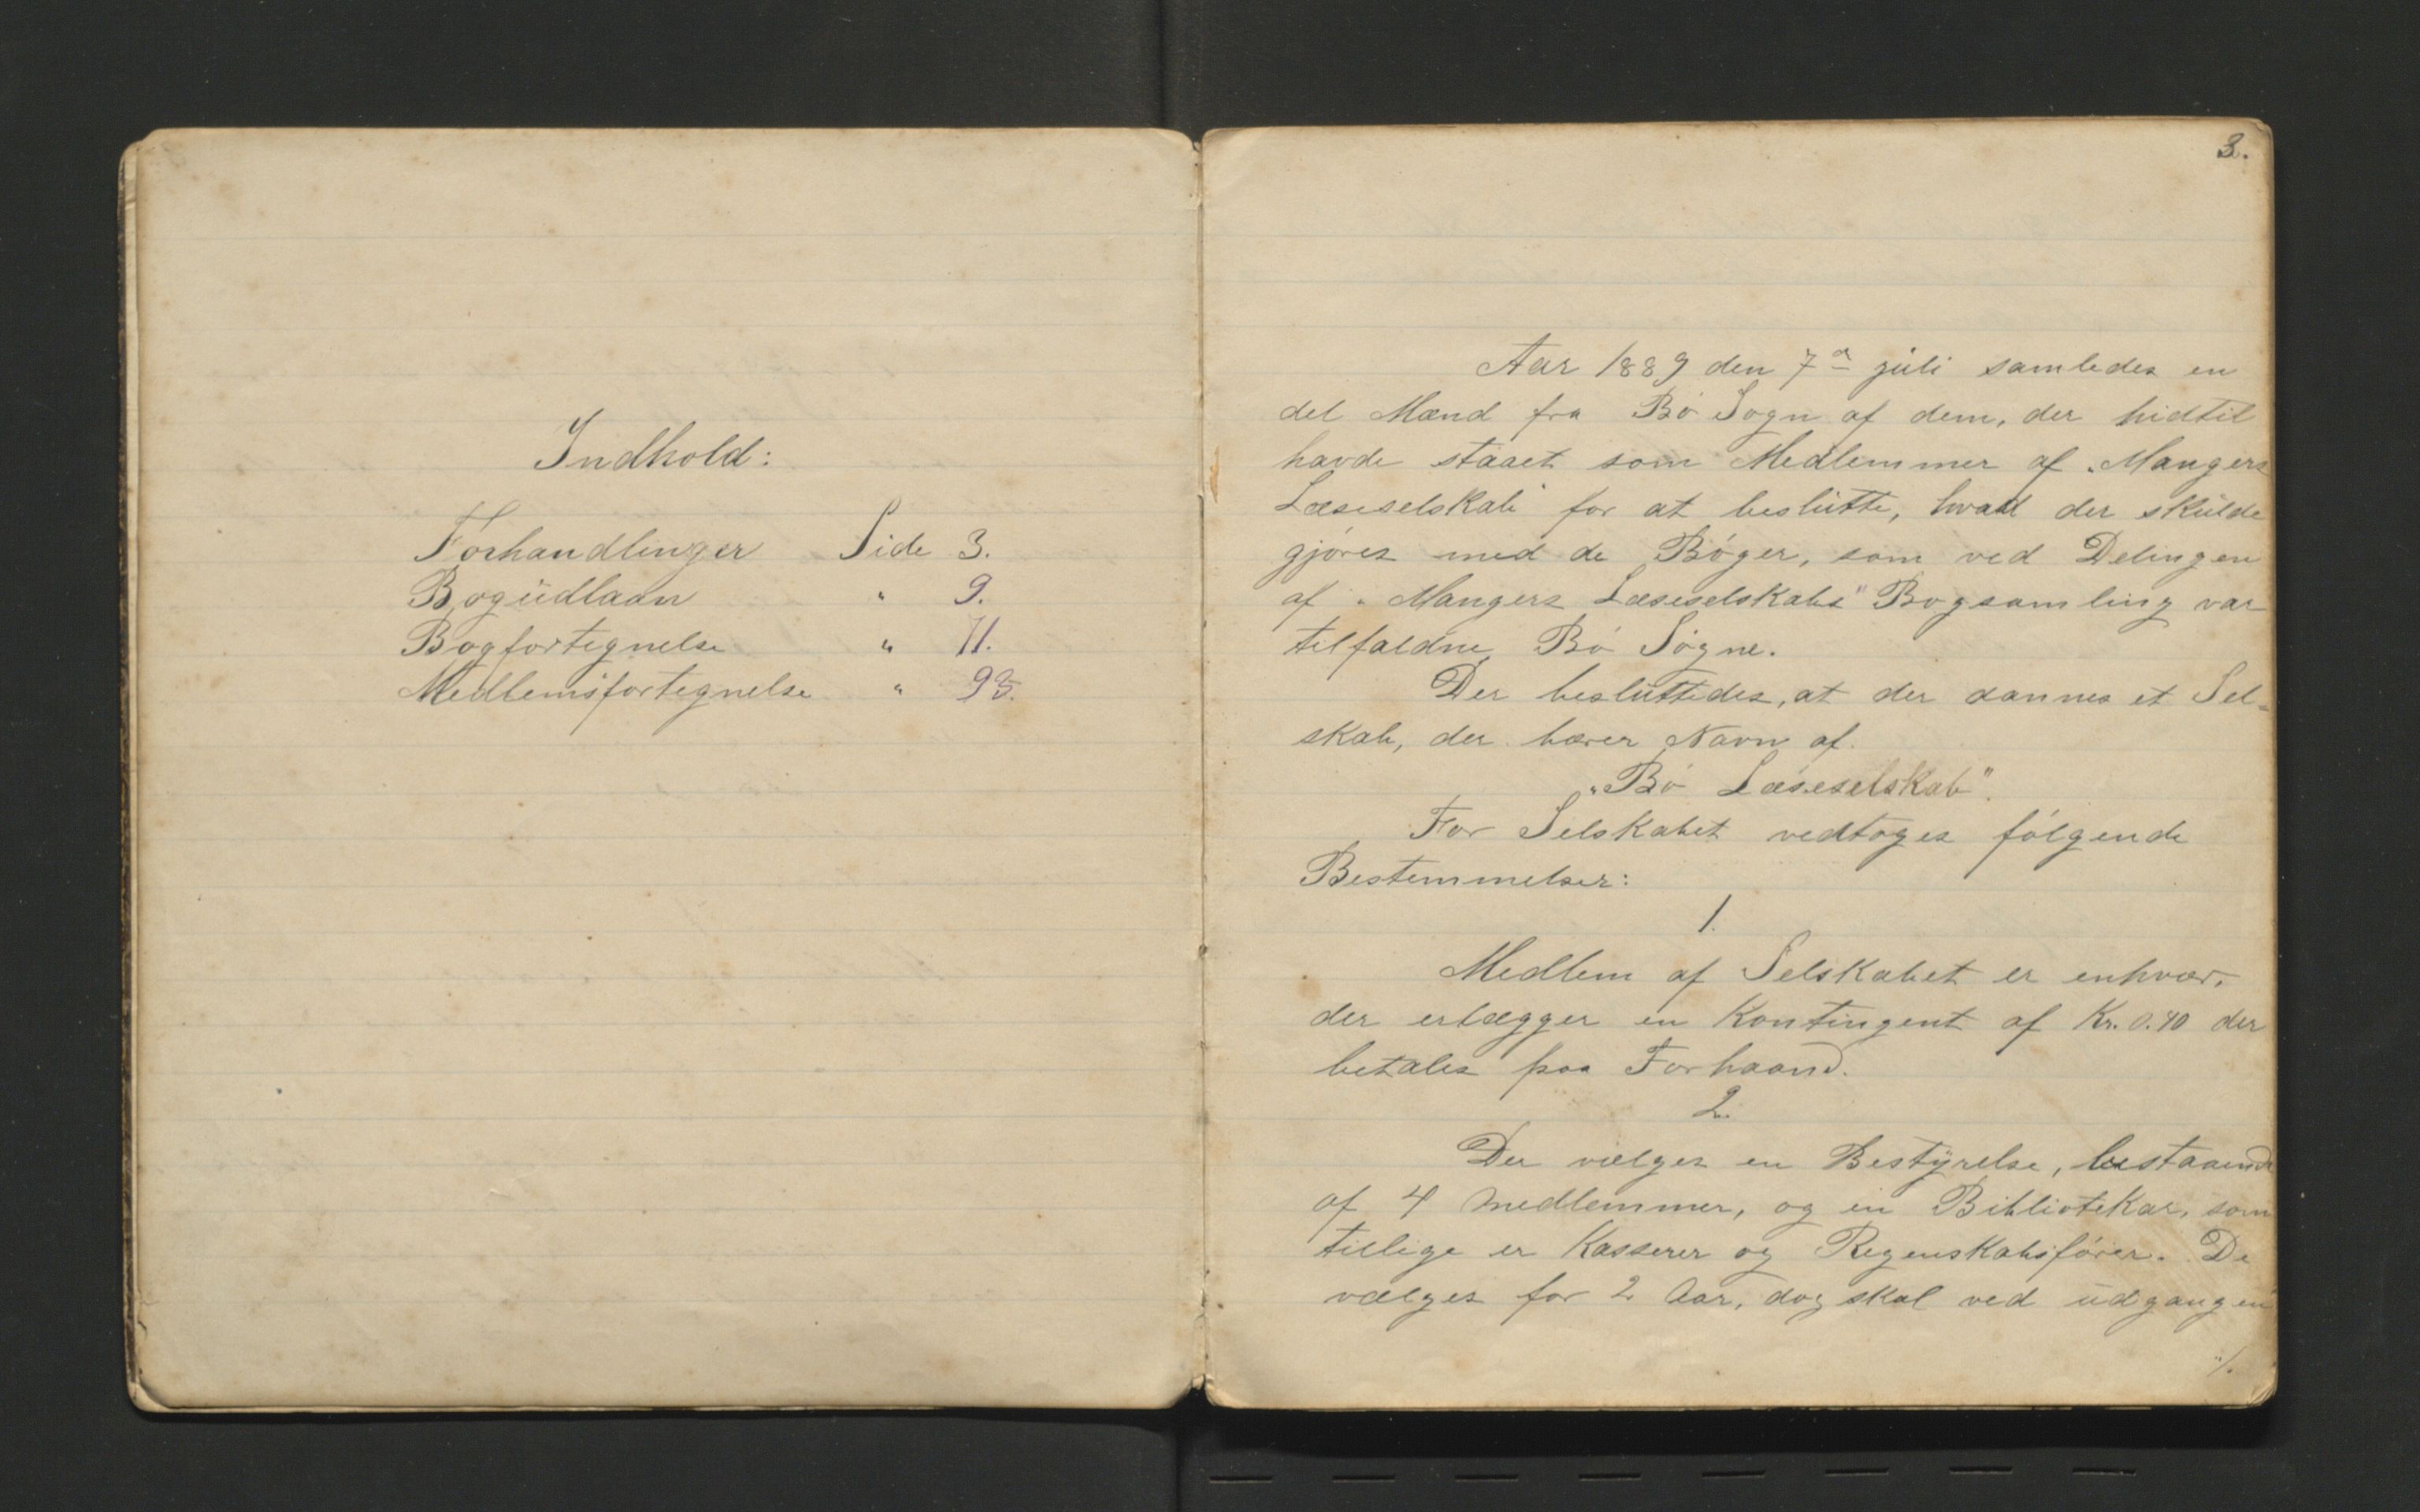 Indhold:
Forhandlinger Side 3.
Bogudlaan " 9.
Bogfortegnelse " 71.
Medlemsfortegnelse " 93.
3.
Aar 1889 den 7de juli samledes en
del Mænd fra Bø Sogn af dem, der hidtil
havde staaet som Medlemmer af „Mangers
Læseselskab" for at beslutte, hvad der skulde
gjøres med de Bøger, som ved Delingen
af „Mangers Læseselskabs" Bogsamling var
tilfaldne Bø Sogne.
Der besluttedes, at der dannes et Sel-
skab, der bærer Navn af
„Bø Læseselskab".
For Selskabet vedtoges følgende
Bestemmelser:
1.
Medlem af Selskabet er enhver,
der erlægger en Kontingent af Kr. 0.40 der
betales paa Forhaand.
2.
Der vælges en Bestyrelse, bestaaende
af 4 medlemmer, og en Bibliotekar, som
tillige er Kasserer og Regenskabsfører. De
vælges for 2 Aar, dog skal ved udgangen
./.